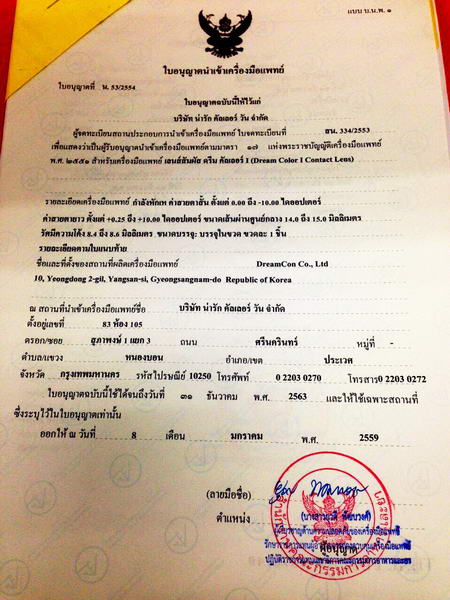 แบบ บ.น.พ. ๑
ใบอนุญาตนำเข้าเครื่องมือแพทย์
ใบอนุญาตที่ น. 53/2554
ใบอนุญาตฉบับนี้ให้ไว้แก่
บริษัท น่ารัก คัลเลอร์ วัน จำกัด
ผู้จดทะเบียนสถานประกอบการนำเข้าเครื่องมือแพทย์ ใบจดทะเบียนที่ สน. 334/2553
เพื่อแสดงว่าเป็นผู้รับอนุญาตนำเข้าเครื่องมือแพทย์ตามมาตรา ๑๗ แห่งพระราชบัญญัติเครื่องมือแพทย์
พ.ศ. ๒๕๕๑ สำหรับเครื่องมือแพทย์ เลนส์สัมผัส ดรีม คัลเลอร์ 1 (Dream Color 1 Contact Lens)
รายละเอียดเครื่องมือแพทย์ กำลังหักเห ค่าสายตาสั้น ตั้งแต่ 0.00 ถึง -10.00 ไดออปเตอร์
ค่าสายตายาว ตั้งแต่ +0.25 ถึง +10.00 ไดออปเตอร์ ขนาดเส้นผ่านศูนย์กลาง 14.0 ถึง 15.0 มิลลิเมตร
รัศมีความโค้ง 8.4 ถึง 8.6 มิลลิเมตร ขนาดบรรจุ: บรรจุในขวด ขวดละ 1 ชิ้น
รายละเอียดตามใบแนบท้าย
ชื่อและที่ตั้งของสถานที่ผลิตเครื่องมือแพทย์ DreamCon Co., Ltd
10, Yeongdong 2-gil, Yangsan-si, Gyeongsangnam-do Republic of Korea
ณ สถานที่นำเข้าเครื่องมือแพทย์ชื่อ บริษัท น่ารัก คัลเลอร์ วัน จำกัด
ตั้งอยู่เลขที่ 83 ห้อง 105
ตรอก/ซอย สุภาพงษ์ 1 แยก 3 ถนน ศรีนครินทร์ หมู่ที่ -
ตำบล/แขวง หนองบอน อำเภอ/เขต ประเวศ
จังหวัด กรุงเทพมหานคร รหัสไปรษณีย์ 10250 โทรศัพท์ 0 2203 0270 โทรสาร 0 2203 0272
ใบอนุญาตฉบับนี้ใช้ได้จนถึงวันที่ ๓๑ ธันวาคม พ.ศ. 2563 และให้ใช้เฉพาะสถานที่
ซึ่งระบุไว้ในใบอนุญาตเท่านั้น
ออกให้ ณ วันที่ 8 เดือน มกราคม พ.ศ. 2559
(ลายมือชื่อ)
ตำแหน่ง
ผู้อนุญาต